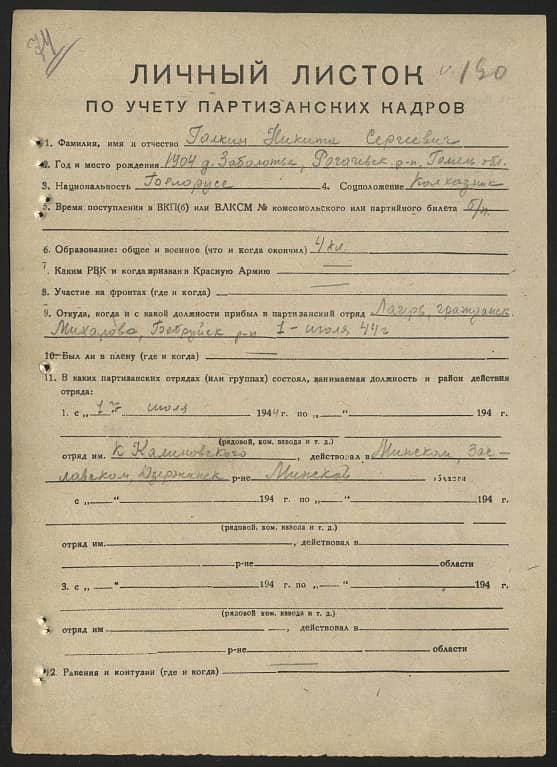 190
ЛИЧНЫЙ ЛИСТОК
ПО УЧЕТУ ПАРТИЗАНСКИХ КАДРОВ
1. Фамилия, имя и отчество Галкин Никита Сергеевич
2. Год и место рождения 1904 д. Заболотье, Рогачевск. р-н, Гомел. обл.
3. Национальность Белорусс 4. Соцположение Колхозник
5. Время поступления в ВКП(б) или ВЛКСМ № комсомольского или партийного билета б/п.
6. Образование: общее и военное (что и когда окончил) 4 кл.
7. Каким РВК и когда призван в Красную Армию —
8. Участие на фронтах (где и когда) —
9. Откуда, когда и с какой должности прибыл в партизанский отряд Лагерь, гражданск.
Бобруйск р-н 1-июля 44 г
10. Был ли в плену (где и когда) —
11. В каких партизанских отрядах (или группах) состоял, занимаемая должность и район действия
отряда:
1. с „1" июля 1944 г. по „ — “ 194 г.
(рядовой, ком. взвода и т. д.)
отряд им. К Калиновского, действовал в Минском, Зас-
лавском Дзержинск р-не Минской области
с „ — “ 194 г. по „ — “ 194 г.
(рядовой, ком. взвода и т. д.)
отряд им. , действовал в
р-не области
3. с „ — “ 194 г. по „ — “ 194 г.
(рядовой, ком. взвода и т. д.)
отряд им , действовал в
р-не области
12. Ранения и контузии (где и когда) —